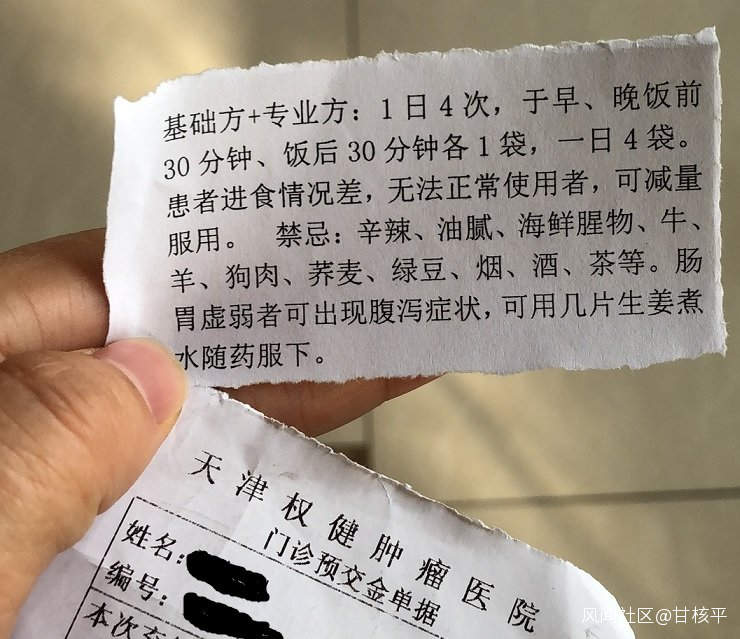 基础方+专业方：1日4次，于早、晚饭前
30分钟、饭后30分钟各1袋，一日4袋。
患者进食情况差，无法正常使用者，可减量
服用。 禁忌：辛辣、油腻、海鲜腥物、牛、
羊、狗肉、荞麦、绿豆、烟、酒、茶等。肠
胃虚弱者可出现腹泻症状，可用几片生姜煮
水随药服下。
天津权健肿瘤医院
门诊预交金单据
姓名：
编号：
本次充
风闻社区@甘核平